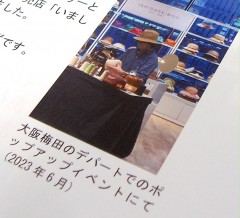 ーと
売店「いまし
した。
です。
大阪梅田のデパートでのポ
ップアップイベントにて
(2023年6月)